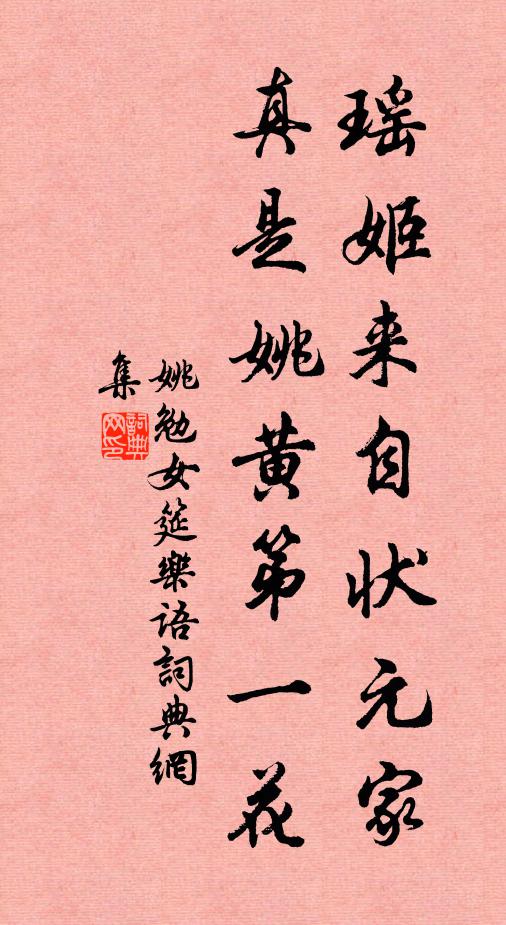 瑶姬来自状元家
真是姚黄第一花
姚勉女筵樂语詞典網
集
詞典网印